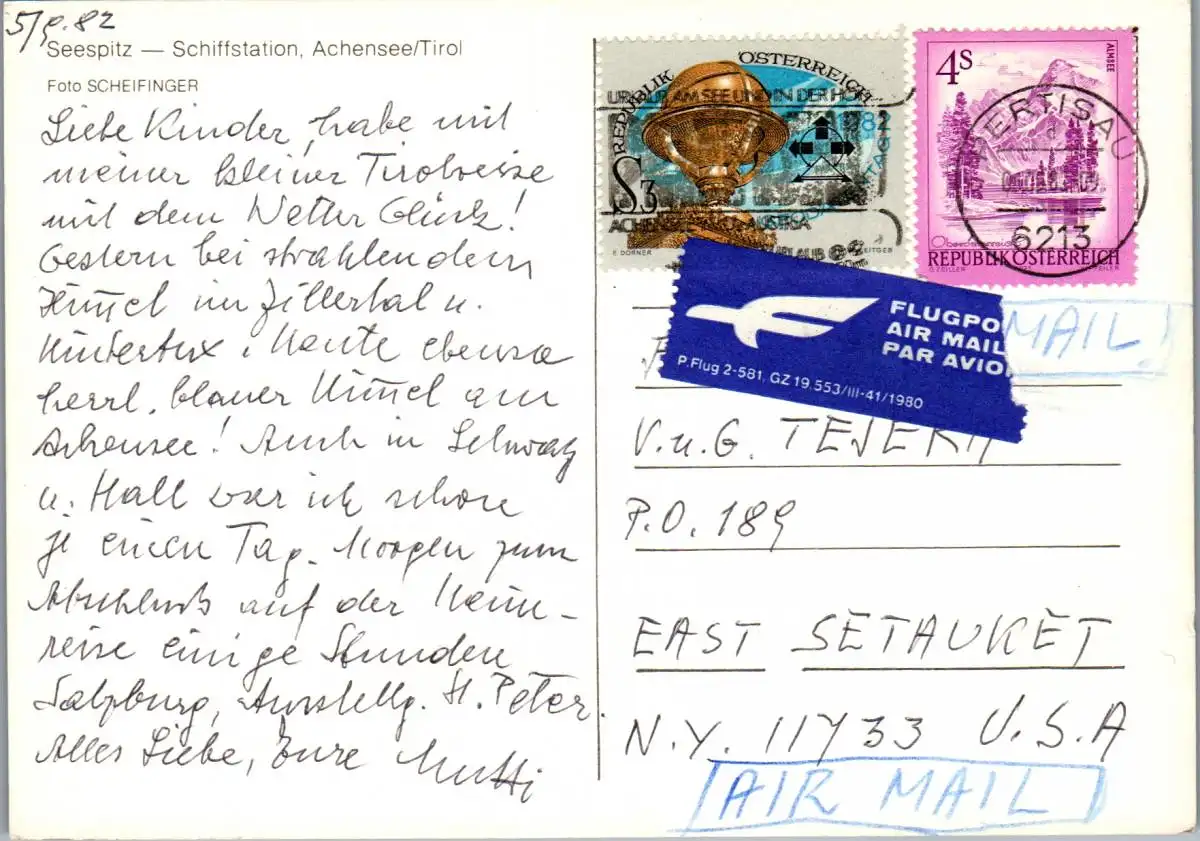 5/9.82
Seespitz — Schiffstation, Achensee/Tirol
Foto SCHEIFINGER
Liebe Kinder, habe mit
meiner kleinen Tirolreise
mit dem Wetter Glück!
Gestern bei strahlendem
Himmel im Zillertal u.
Hintertux. Heute ebenso
herrl. blauer Himmel am
Achensee! Auch in Schwaz
u. Hall war ich schon
je einen Tag. Morgen zum
Abschluß auf der Heim-
reise einige Stunden
Salzburg, Ausstellg. St. Peter.
Alles Liebe, Eure Mutti
REPUBLIK ÖSTERREICH
URLAUB AM SEE UND IN DER HÖH
S3
ACHENSEE
AUSTRIA
E DORNER
LEITGEB
4S
ALMSEE
PERTISAU
6213
Oberösterreich
REPUBLIK ÖSTERREICH
O. ZEILLER
FLUGPO
AIR MAIL
PAR AVION
P.Flug 2-581, GZ 19.553/III-41/1980
MAIL
V.u.G. TEJERA
P.O. 189
EAST SETAUKET
N.Y. 11733 U.S.A
AIR MAIL